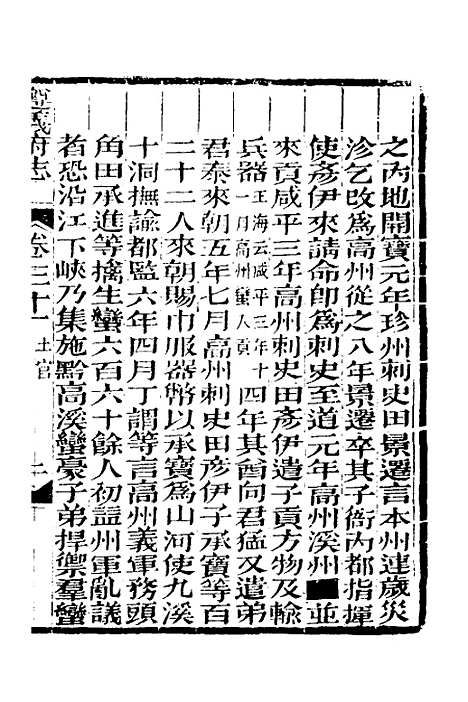 之內地開寶元年珍州刺史田景遷言本州連歲災
沴乞改爲高州從之八年景遷卒其子衙內都指揮
使彥伊來請命卽爲刺史至道元年高州溪州並
來貢咸平三年高州刺史田彥伊遣子貢方物及輸
兵器玉海云咸平三年十一月高州蠻人貢四年其酋向君猛又遣弟
君泰來朝五年七月高州刺史田彥伊子承寶等百
二十二人來朝賜巾服器幣以承寶爲山河使九溪
十洞撫諭都監六年四月丁謂等言高州義軍務頭
角田承進等擒生蠻六百六十餘人初益州軍亂議
者恐沿江下峽乃集施黔高溪蠻豪子弟捍禦羣蠻
遵義府志 卷三十一 土官